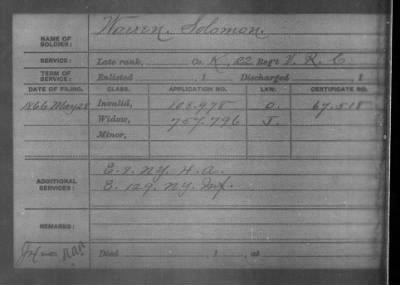 NAME OF SOLDIER: Warren, Solomon.
SERVICE: Late rank, Co. K, 22 Reg't V. R. C.
TERM OF SERVICE: Enlisted , 1 Discharged , 1
DATE OF FILING. CLASS. APPLICATION NO. LAW. CERTIFICATE NO.
1866 May 28 Invalid, 108.978 O. 67.518
Widow, 757.796 J.
Minor,
ADDITIONAL SERVICES: E. 8. N.Y. H. A.
E. 129. N.Y. Inf.
REMARKS:
Died , 1 , at